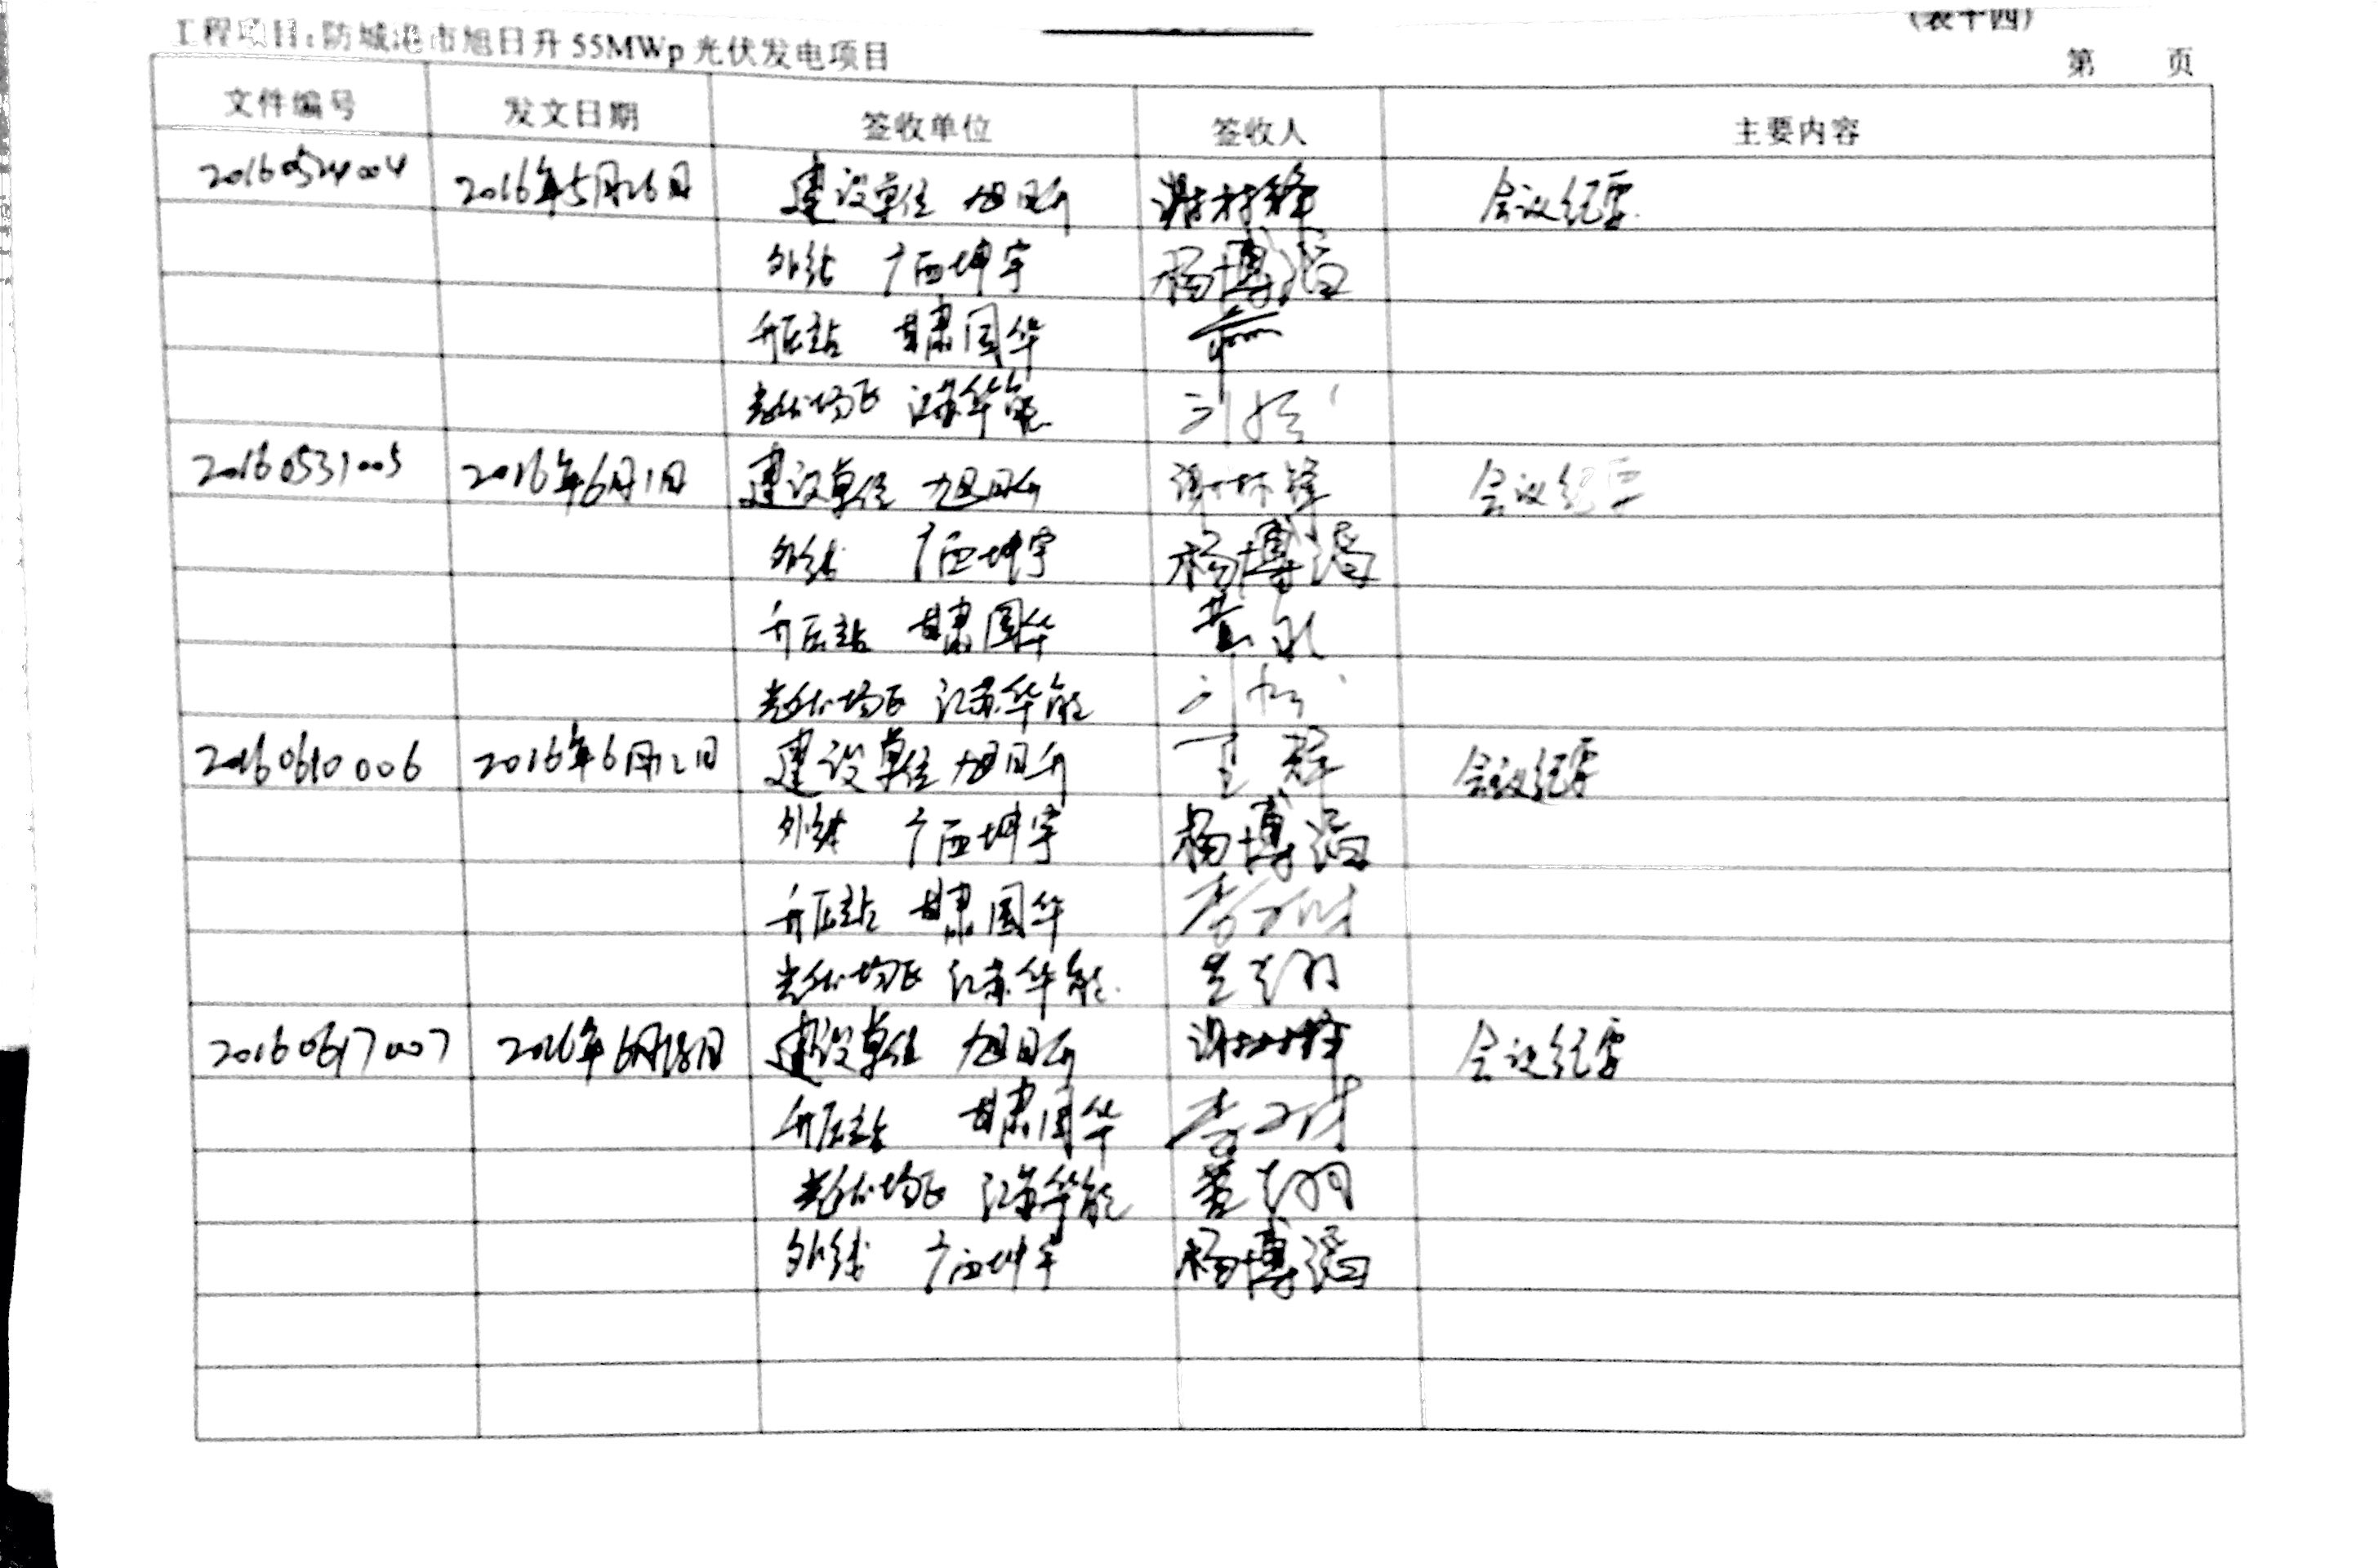 (表十四)
工程项目：防城港市旭日升55MWp光伏发电项目
第 页
文件编号 发文日期 签收单位 签收人 主要内容
20160524004 2016年5月26日 建设单位 旭日升 会议纪要
外线 广西坤宇 杨博滔
升压站 甘肃国华
光伏场区 江苏华能 刘
20160531005 2016年6月1日 建设单位 旭日升 会议纪要
外线 广西坤宇 杨博滔
升压站 甘肃国华
光伏场区 江苏华能 刘
20160610006 2016年6月12日 建设单位 旭日升 会议纪要
外线 广西坤宇 杨博滔
升压站 甘肃国华 李
光伏场区 江苏华能
20160617007 2016年6月18日 建设单位 旭日升 会议纪要
升压站 甘肃国华 李
光伏场区 江苏华能
外线 广西坤宇 杨博滔